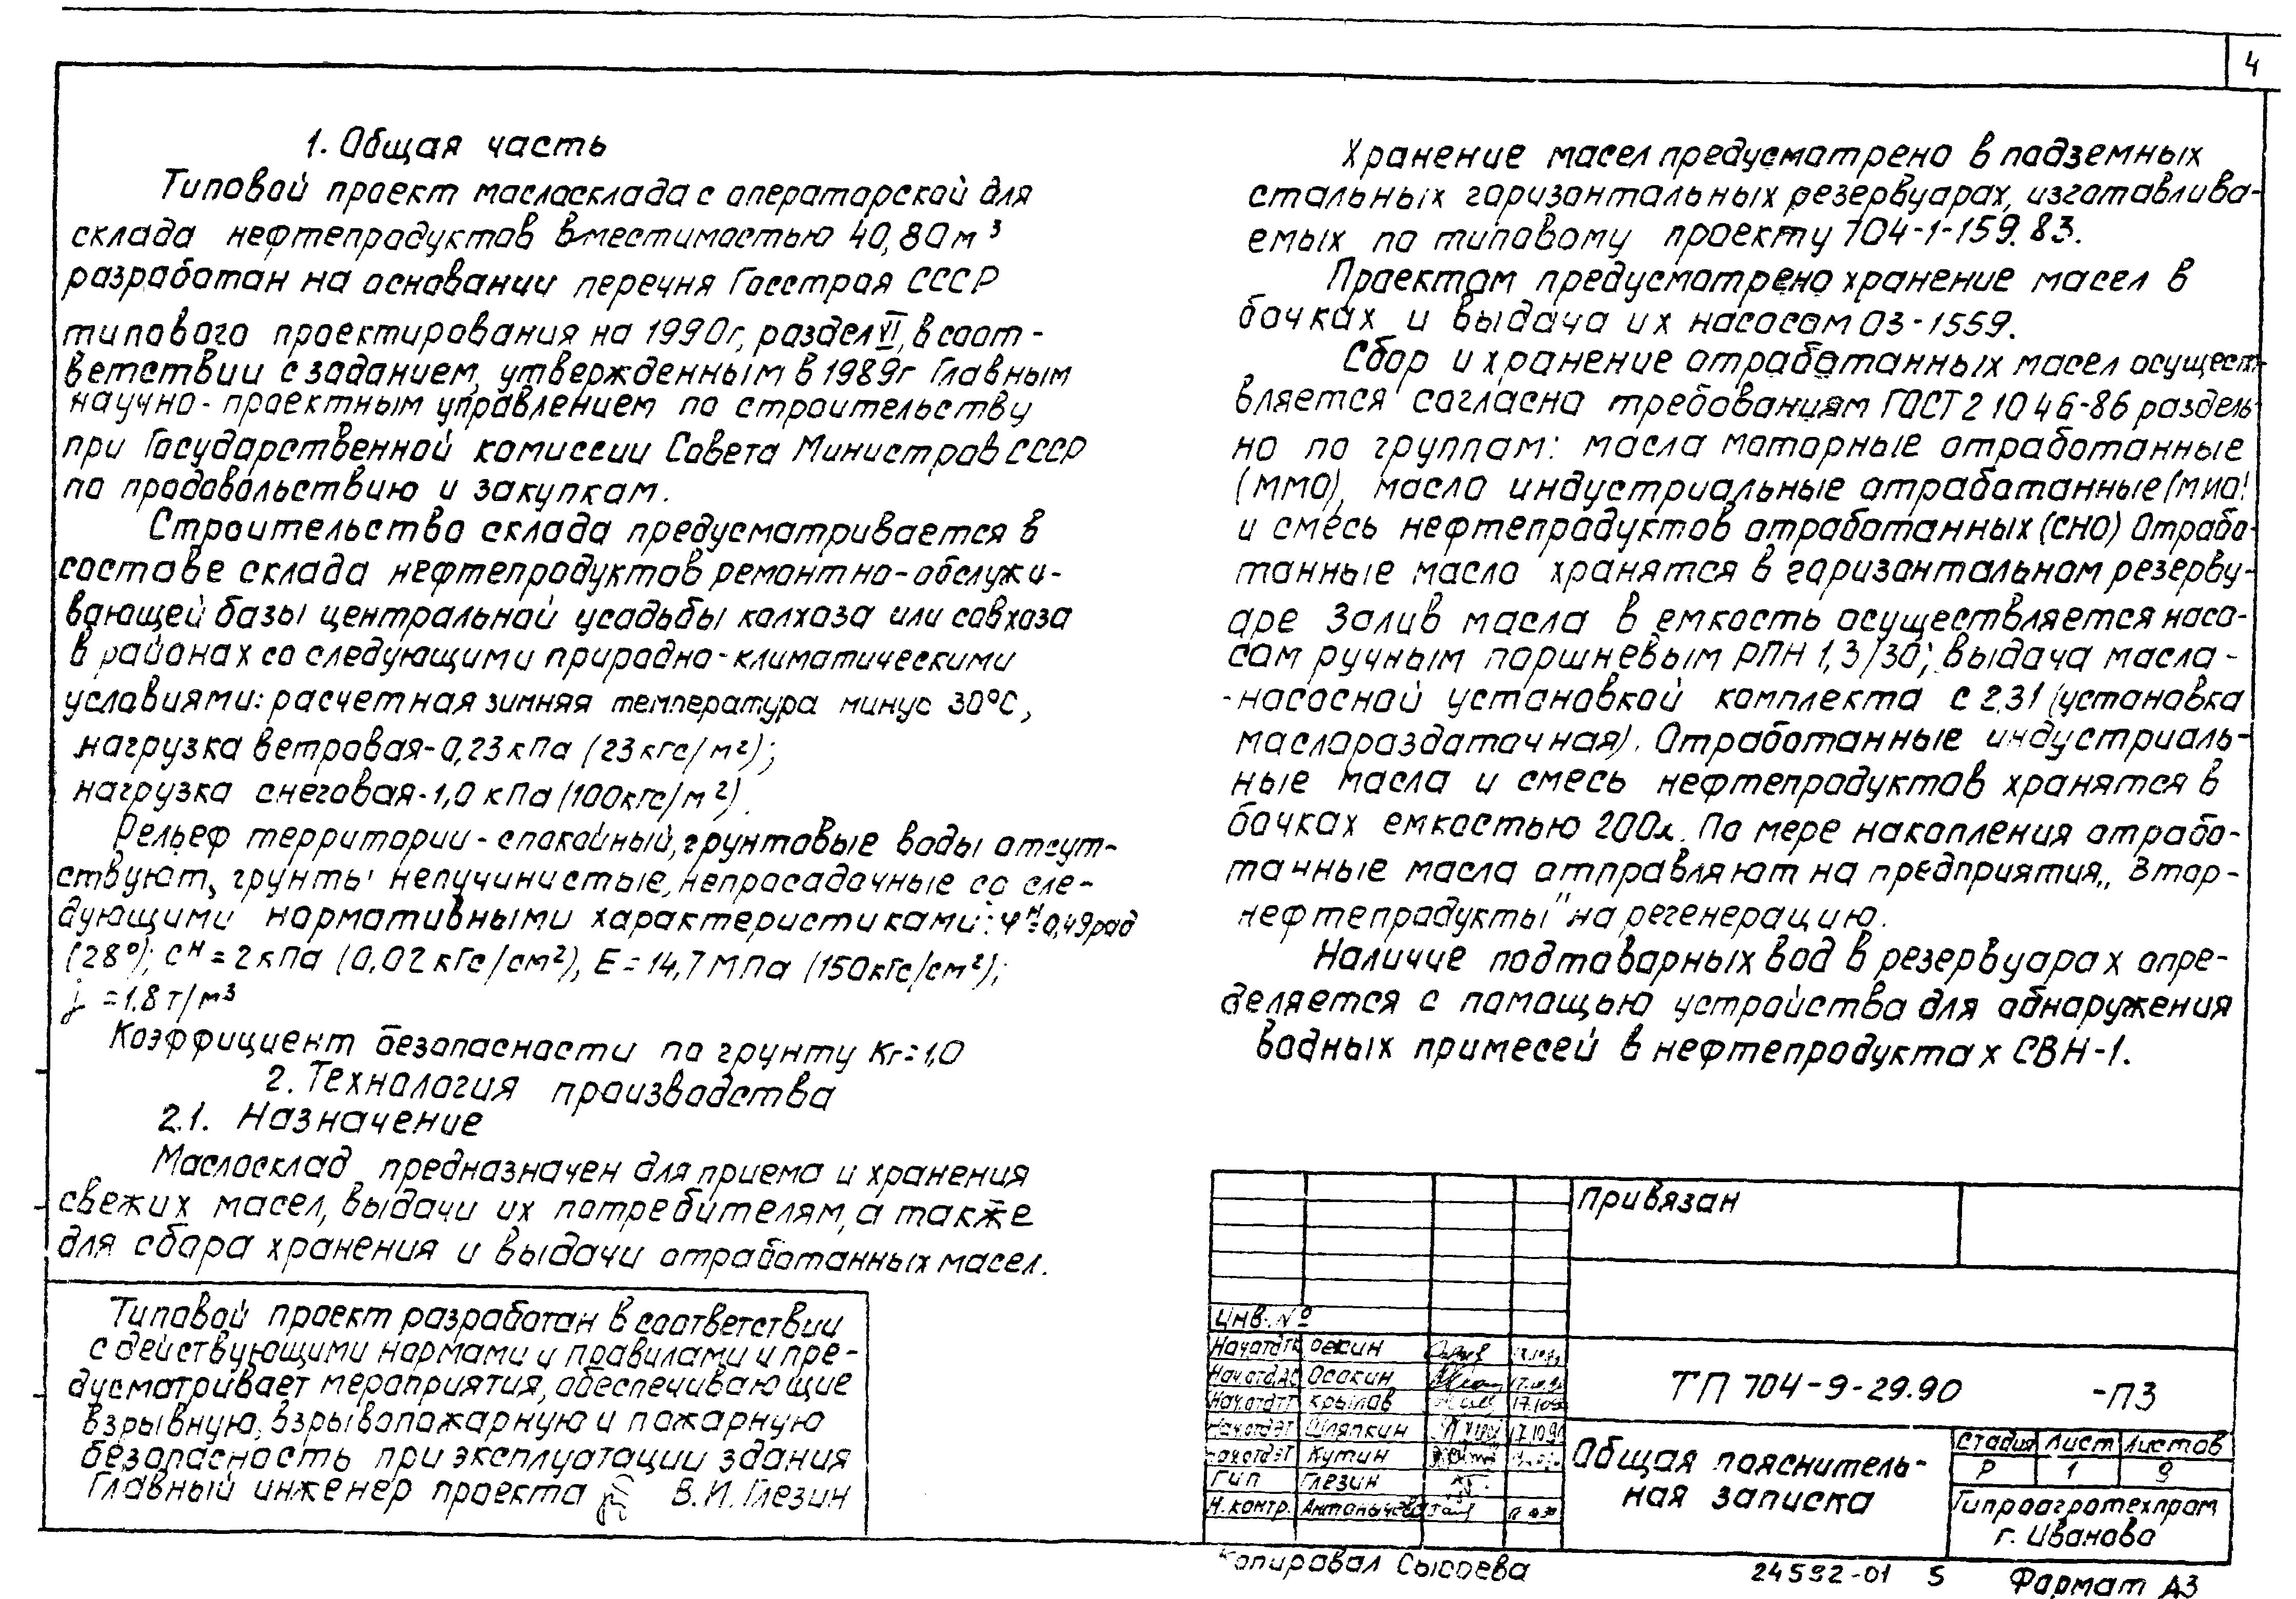 4
1. Общая часть
Типовой проект маслосклада с операторской для
склада нефтепродуктов вместимостью 40,80 м³
разработан на основании перечня Госстроя СССР
типового проектирования на 1990г, раздел VI, в соот-
ветствии с заданием, утвержденным в 1989г Главным
научно-проектным управлением по строительству
при Государственной комиссии Совета Министров СССР
по продовольствию и закупкам.
Строительство склада предусматривается в
составе склада нефтепродуктов ремонтно-обслужи-
вающей базы центральной усадьбы колхоза или совхоза
в районах со следующими природно-климатическими
условиями: расчетная зимняя температура минус 30°С,
нагрузка ветровая-0,23 кПа (23 кгс/м²);
нагрузка снеговая-1,0 кПа (100кгс/м²).
Рельеф территории - спокойный, грунтовые воды отсут-
ствуют, грунты непучинистые, непросадочные со сле-
дующими нормативными характеристиками: φᴴ=0,49рад
(28°); сᴴ = 2 кПа (0,02 кгс/см²), Е = 14,7 МПа (150кгс/см²);
γ = 1.8 т/м³
Коэффициент безопасности по грунту Кг=1,0
2. Технология производства
2.1. Назначение
Маслосклад предназначен для приема и хранения
свежих масел, выдачи их потребителям, а также
для сбора хранения и выдачи отработанных масел.
Типовой проект разработан в соответствии
с действующими нормами и правилами и пре-
дусматривает мероприятия, обеспечивающие
взрывную, взрывопожарную и пожарную
безопасность при эксплуатации здания
Главный инженер проекта В.И. Глезин
Хранение масел предусмотрено в подземных
стальных горизонтальных резервуарах, изготавлива-
емых по типовому проекту 704-1-159.83.
Проектом предусмотрено хранение масел в
бочках и выдача их насосом 03-1559.
Сбор и хранение отработанных масел осущест-
вляется согласно требованиям ГОСТ 21046-86 раздель-
но по группам: масла моторные отработанные
(ММО), масло индустриальные отработанные (МИО)
и смесь нефтепродуктов отработанных (СНО) Отрабо-
танные масло хранятся в горизонтальном резерву-
аре Залив масла в емкость осуществляется насо-
сом ручным поршневым РПН 1,3/30; выдача масла -
-насосной установкой комплекта с 231 (установка
маслораздаточная). Отработанные индустриаль-
ные масла и смесь нефтепродуктов хранятся в
бочках емкостью 200л. По мере накопления отрабо-
танные масла отправляют на предприятия „Втор-
нефтепродукты" на регенерацию.
Наличие подтоварных вод в резервуарах опре-
деляется с помощью устройства для обнаружения
водных примесей в нефтепродуктах СВН-1.
Привязан
Инв. №
Осокин
Нач.отд. Осокин
Нач.отд. Крылов
Нач.отд. Шляпкин 17.10.90
Нач.отд. Кутин
ГИП Глезин
Н.контр.
ТП 704-9-29.90 -ПЗ
Общая пояснитель-
ная записка
Стадия Лист Листов
Р 1 9
Гипроагротехпром
г. Иваново
Копировал Сысоева 24592-01 5 Формат А3